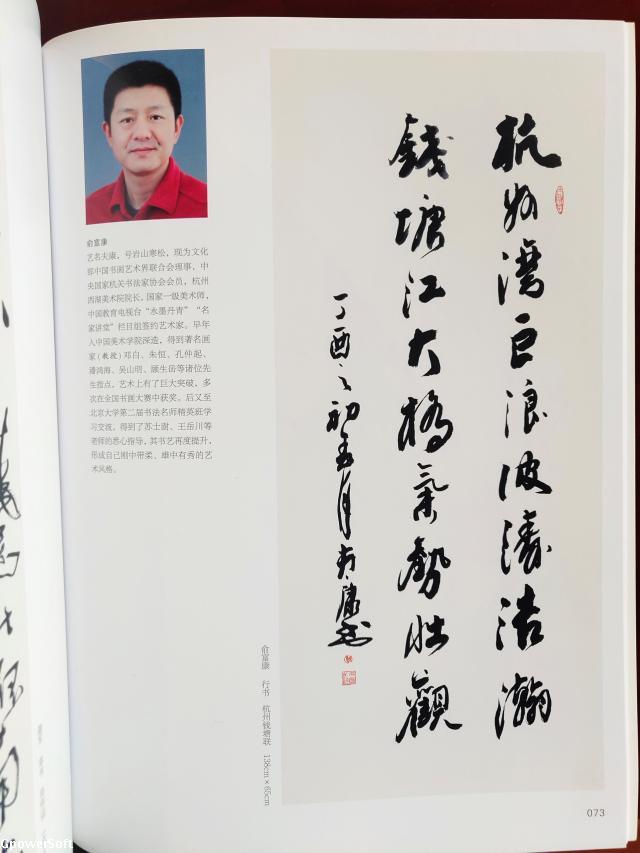 俞富康
艺名夫康，号岩山寒松，现为文化
部中国书画艺术界联合会理事，中
央国家机关书法家协会会员，杭州
西湖美术院院长，国家一级美术师，
中国教育电视台“水墨丹青”“名
家讲堂”栏目组签约艺术家。早年
入中国美术学院深造，得到著名画
家（教授）邓白、朱恒、孔仲起、
潘鸿海、吴山明、顾生岳等诸位先
生指点，艺术上有了巨大突破，多
次在全国书画大赛中获奖。后又至
北京大学第二届书法名师精英班学
习交流，得到了苏士澍、王岳川等
老师的悉心指导，其书艺再度提升，
形成自己刚中带柔、雄中有秀的艺
术风格。
杭州湾巨浪波涛浩瀚
錢塘江大橋氣勢壮觀
丁酉之初五月夫康书
俞富康 行书 杭州钱塘联 138cm×65cm
073
GpowerSoft